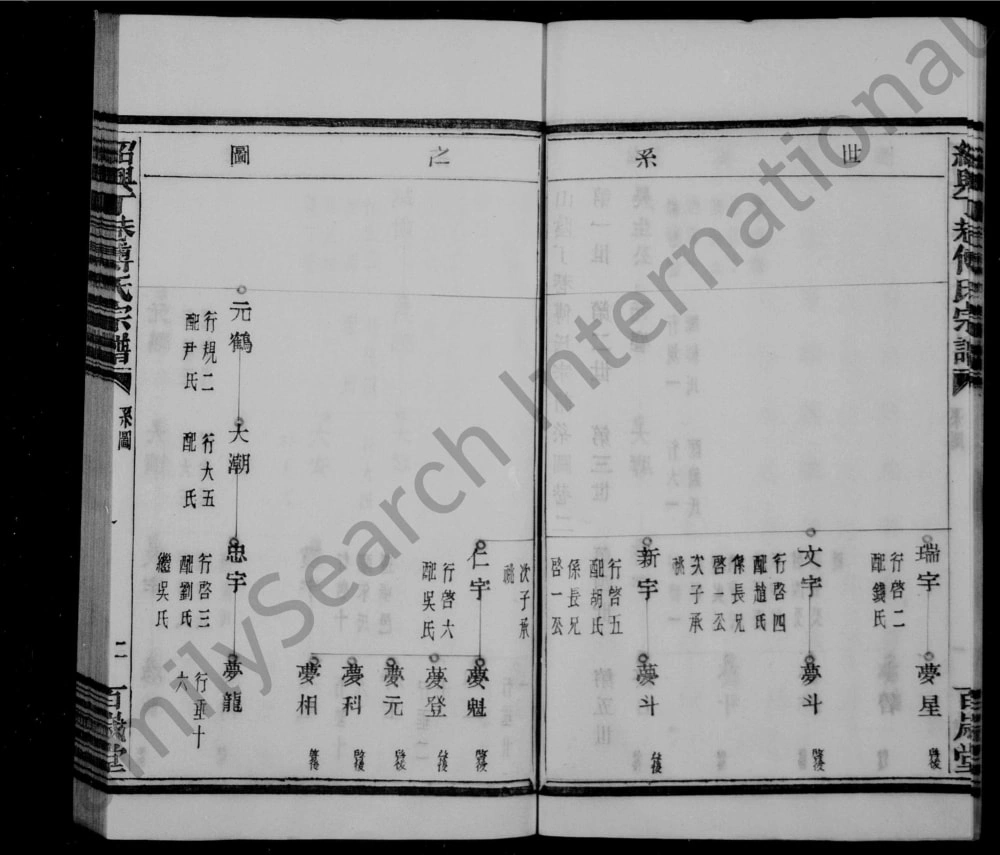 世系之圖
瑞宇
行啓二
配錢氏
夢星
文宇
行啓四
配趙氏
係長兄
啓一公
次子承
祧
夢斗
新宇
行啓五
配胡氏
係長兄
啓一公
次子承
祧
夢斗
仁宇
行啓六
配吳氏
夢魁
夢登
夢元
夢科
夢相
元鶴
行規二
配尹氏
大潮
行大五
配 氏
忠宇
行啓三
配劉氏
繼吳氏
夢龍
行垂十
六
紹興丁巷傅氏宗譜
系圖
二
百歲堂
FamilySearch International